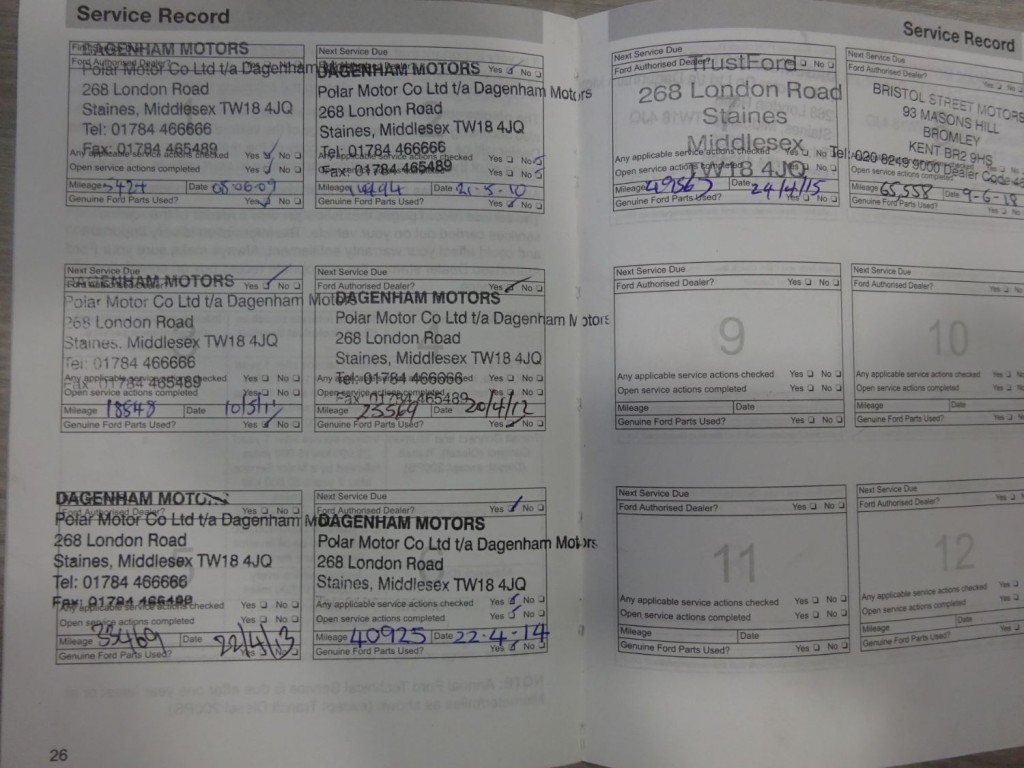 Service Record
DAGENHAM MOTORS
Ford Authorised Dealer? Yes No
Polar Motor Co Ltd t/a Dagenham
268 London Road
Staines, Middlesex TW18 4JQ
Tel: 01784 466666
Fax: 01784 465489
Any applicable service actions checked Yes No
Open service actions completed Yes No
Mileage 5424 Date 08-06-09
Genuine Ford Parts Used? Yes No
Next Service Due
DAGENHAM MOTORS Yes No
Polar Motor Co Ltd t/a Dagenham Motors
268 London Road
Staines, Middlesex TW18 4JQ
Tel: 01784 466666
Any applicable service actions checked Yes No
Fax: 01784 465489 Yes No
Mileage 14494 Date 21-5-10
Genuine Ford Parts Used? Yes No
Next Service Due
DAGENHAM MOTORS Yes No
Polar Motor Co Ltd t/a Dagenham Motors
268 London Road
Staines, Middlesex TW18 4JQ
Tel: 01784 466666
Any applicable service actions checked Yes No
Fax: 01784 465489
Open service actions completed Yes No
Mileage 18548 Date 10/5/11
Genuine Ford Parts Used? Yes No
Next Service Due
Ford Authorised Dealer? Yes No
DAGENHAM MOTORS
Polar Motor Co Ltd t/a Dagenham Motors
268 London Road
Staines, Middlesex TW18 4JQ
Any applicable service actions checked Yes No
Tel: 01784 466666
Open service actions completed Yes No
Fax: 01784 465489
Mileage 25569 Date 20/4/12
Genuine Ford Parts Used? Yes No
DAGENHAM MOTORS
Ford Authorised Dealer? Yes No
Polar Motor Co Ltd t/a Dagenham
268 London Road
Staines, Middlesex TW18 4JQ
5
Tel: 01784 466666
Fax: 01784 465489
Any applicable service actions checked Yes No
Open service actions completed Yes No
Mileage 33469 Date 22/4/13
Genuine Ford Parts Used? Yes No
Next Service Due
Ford Authorised Dealer? Yes No
DAGENHAM MOTORS
Polar Motor Co Ltd t/a Dagenham Motors
268 London Road
6
Staines, Middlesex TW18 4JQ
Any applicable service actions checked Yes No
Open service actions completed Yes No
Mileage 40925 Date 22-4-14
Genuine Ford Parts Used? Yes No
26
Service Record
Next Service Due
Ford Authorised Dealer? Yes No
TrustFord
268 London Road
Staines
Middlesex
Any applicable service actions checked Yes No
Open service actions completed Yes No
TW18 4JQ
Mileage 49567 Date 24/4/15
Genuine Ford Parts Used? Yes No
Next Service Due
Ford Authorised Dealer? Yes No
BRISTOL STREET MOTORS
93 MASONS HILL
BROMLEY
KENT BR2 9HS
Tel: 020 8249 9000 Dealer Code
Open service actions completed
Mileage 65,558 Date 9-6-18
Genuine Ford Parts Used? Yes No
Next Service Due
Ford Authorised Dealer? Yes No
9
Any applicable service actions checked Yes No
Open service actions completed Yes No
Mileage Date
Genuine Ford Parts Used? Yes No
Next Service Due
Ford Authorised Dealer? Yes No
10
Any applicable service actions checked Yes No
Open service actions completed Yes No
Mileage Date
Genuine Ford Parts Used? Yes No
Next Service Due
Ford Authorised Dealer? Yes No
11
Any applicable service actions checked Yes No
Open service actions completed Yes No
Mileage Date
Genuine Ford Parts Used? Yes No
Next Service Due
Ford Authorised Dealer? Yes
12
Any applicable service actions checked Yes
Open service actions completed Yes
Mileage Date
Genuine Ford Parts Used? Yes